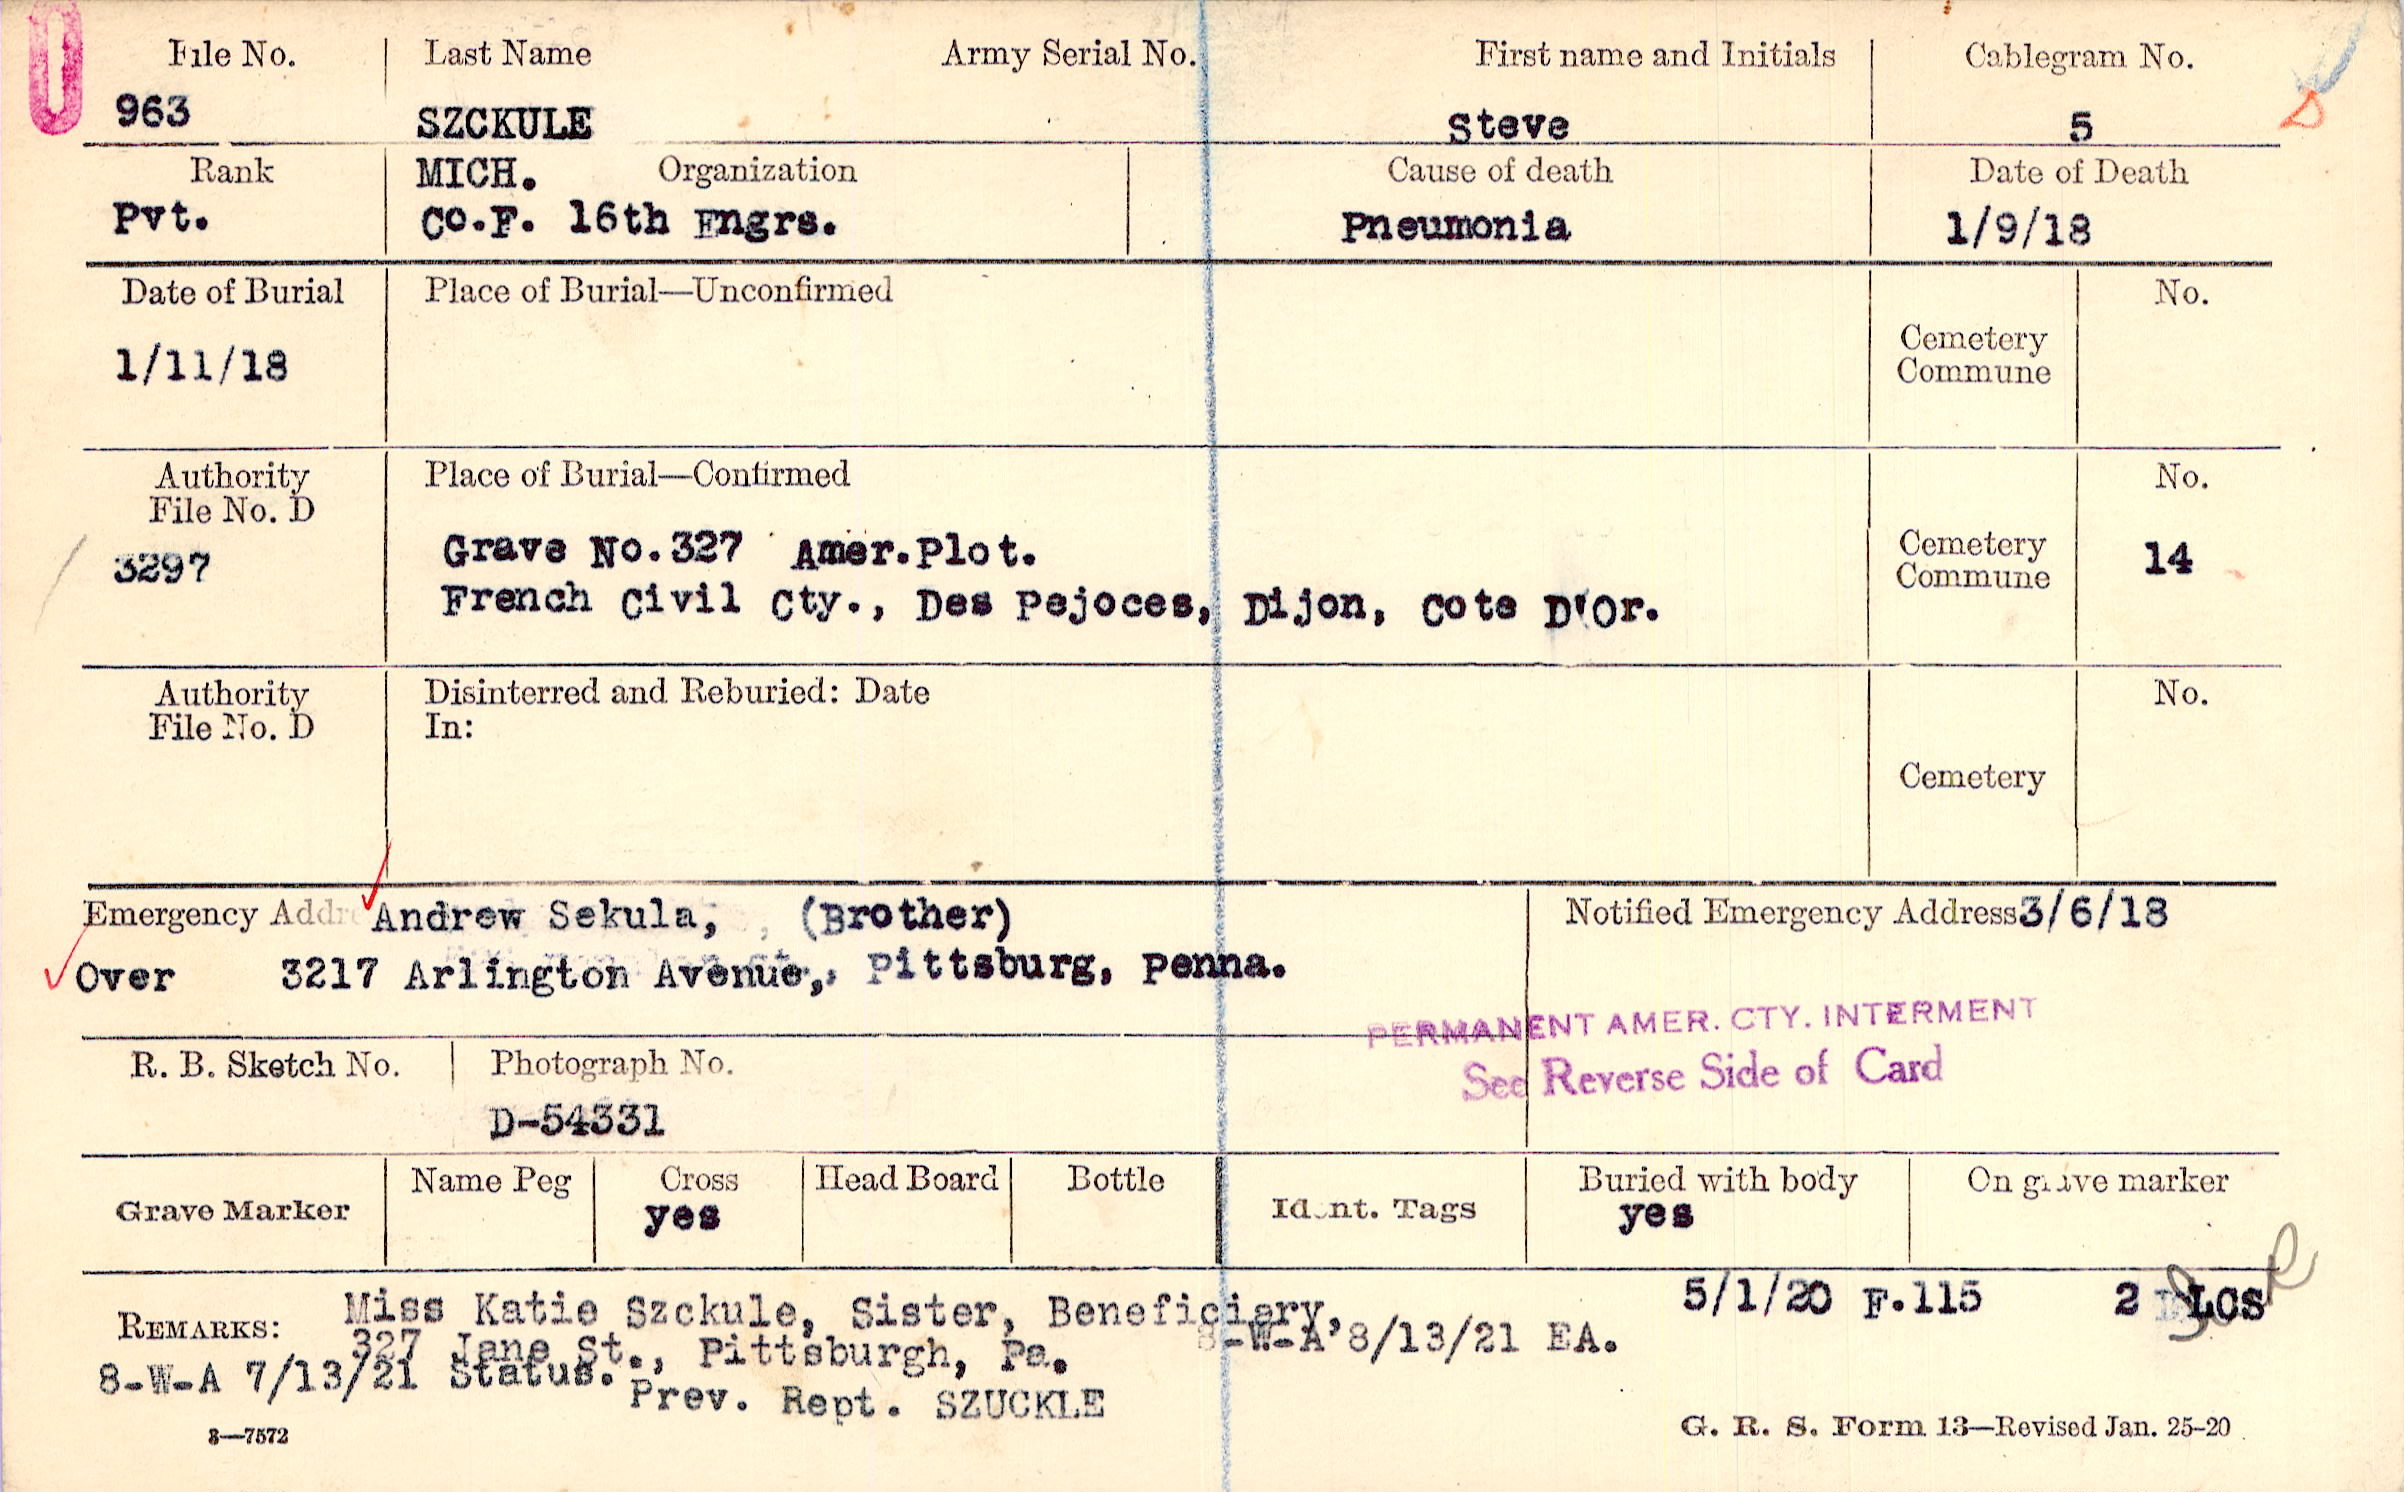 File No. Last Name Army Serial No. First name and Initials Cablegram No.
963 SZCKULE Steve 5
Rank MICH. Organization Cause of death Date of Death
Pvt. Co.F. 16th Engrs. Pneumonia 1/9/18
Date of Burial Place of Burial—Unconfirmed No.
Cemetery
Commune
1/11/18
Authority Place of Burial—Confirmed No.
File No. D
3297 Grave No.327 Amer.Plot. Cemetery
Commune 14
French Civil Cty., Des Pejoces, Dijon, Cote D'Or.
Authority Disinterred and Reburied: Date No.
File No. D In:
Cemetery
Emergency Addre Andrew Sekula, (Brother) Notified Emergency Address 3/6/18
Over 3217 Arlington Avenue,, Pittsburg, Penna.
PERMANENT AMER. CTY. INTERMENT
See Reverse Side of Card
R. B. Sketch No. Photograph No.
D-54331
Grave Marker Name Peg Cross Head Board Bottle Ident. Tags Buried with body On grave marker
yes yes
5/1/20 F.115 2 LCS
REMARKS: Miss Katie Szckule, Sister, Beneficiary,
327 Jane St., Pittsburgh, Pa. 8-W-A 8/13/21 EA.
8-W-A 7/13/21 Status.
Prev. Rept. SZUCKLE
3—7572 G. R. S. Form 13—Revised Jan. 25-20